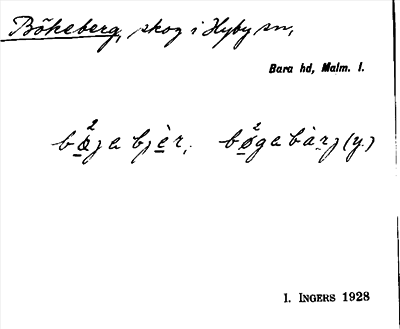 Bökeberg, skog i Hyby sn,
Bara hd, Malm. l.
bø̲²ja bjè̲r, bø̲²ga bàrj (y.)
I. INGERS 1928